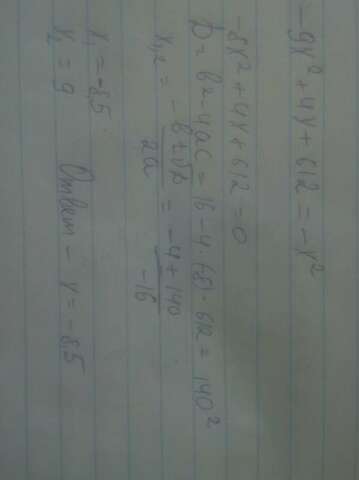 -9x² + 4x + 612 = -x²
-8x² + 4x + 612 = 0
D = b² - 4ac = 16 - 4 · (-8) · 612 = 140²
x₁,₂ = (-b ± √D) / 2a = (-4 ± 140) / -16
x₁ = -8,5
x₂ = 9 Ответ - x = -8,5